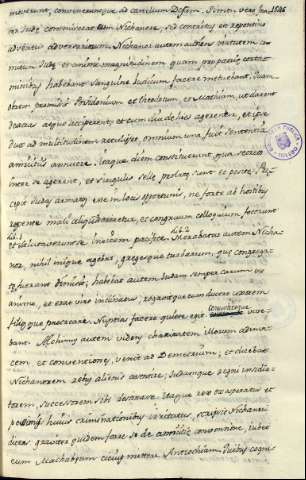 moverent, convenerunt que ad castellum Dessau. Simon vero
ad Judæ commiserat cum Nichanore, sed conterritus est repentino
adventu adversariorum. Nichanor autem audiens virtutem co-
mitum Judæ, et animi magnitudinem quam pro patria certa-
minibus habebant sanguine judicium facere metuebat. Quam
obrem præmisit Posidonium et Theodotum, et Mathiam, ut darent
dextras atque acciperent, et cum diu de his ageretur, et ipse
dux ad multitudinem retulisset, omnium una fuit sententia
amicitiis annuere. Itaque diem constituerunt, qua secreto
inter se agerent, et singulis sellæ prolatæ sunt et positæ. Præ-
cepit Judas armatos esse in locis opportunis, ne forte ab hostibus
repente mali aliquid oriretur, et congruum colloquium fecerunt
Morabatur autem Nicha-
nor, nihil inique agebat, gregesque turbarum, quæ congregatæ
fuerant dimisit, habebat autem Judam semper carum ex
animo, et erat viro inclinatus, rogavitque eum ducere uxorem
filiosque procreare. Nuptias fecit, quiete egit communiterque vive-
bant. Alcimus autem videns charitatem illorum ad invi-
cem et conventiones, venit ad Demetrium, et dicebat
Nichanorem rebus alienis assentire, Judamque regni insidia-
torem, successorem sibi destinasse. Itaque rex exasperatus et
pessimis huius criminationibus irritatus, scripsit Nichanori
dicens, graviter quidem ferre se de amicitiæ conventione, jubere
eum Machabæum citius mittere Antiochiam. Quibus cognitis